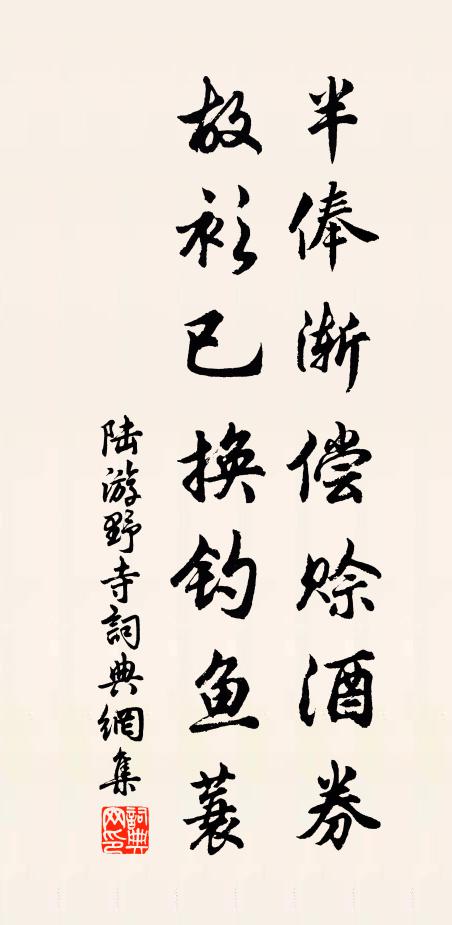 半俸渐偿赊酒券
故衫已换钓鱼蓑
陆游野寺詞典網集
詞典网印